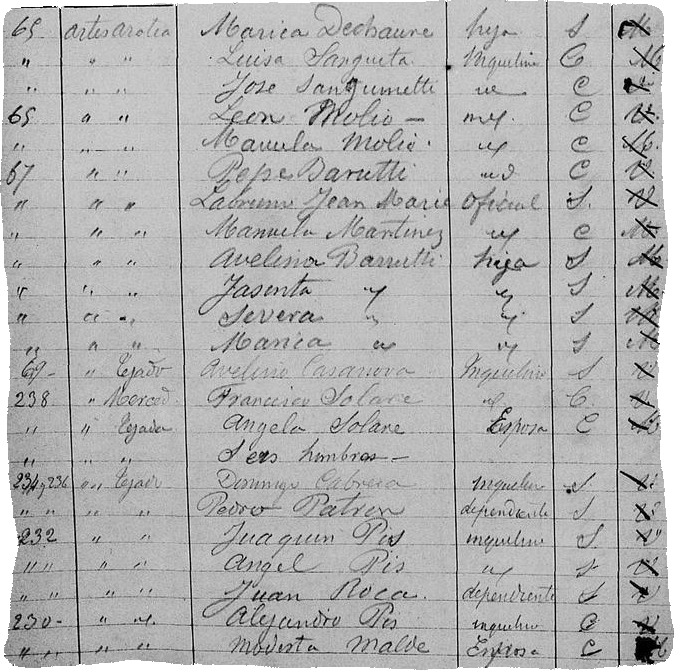 65 artes azotea Marica Dechaure hija S
" " " Luisa Sangueta Inquelino C M
" " " Jose Sanguinetti " C
65 " " Leon Molio — " C V
" " " Manuela Molio " C M
67 " " Pepe Barutti " C V
" " " Labrune Jean Marie Oficial S. V
" " " Manuela Martinez " C M
" " " Avelina Barrutti hija S M
" " " Jasenta " " S M
" " " Severa " " S M
" " " Marica " " S M
69 - " Tejado Avelino Casanova Inquelino S V
238 " Merced Francisco Solare " C. V
" " Tejada Angela Solare Esposa C M
" " " Seis hombres —
234 y 236 " " Tejado Domingo Cabrera inquelino S. V
" " " " Pedro Patron dependiente S V
232 " " Juaquin Pis inquelino S. V
" " " " Angel Pis " S V
" " " " Juan Roca. dependiente S V
230 - " " Alejandro Pis inquelino C V
" " " " Modesta Malde Esposa C